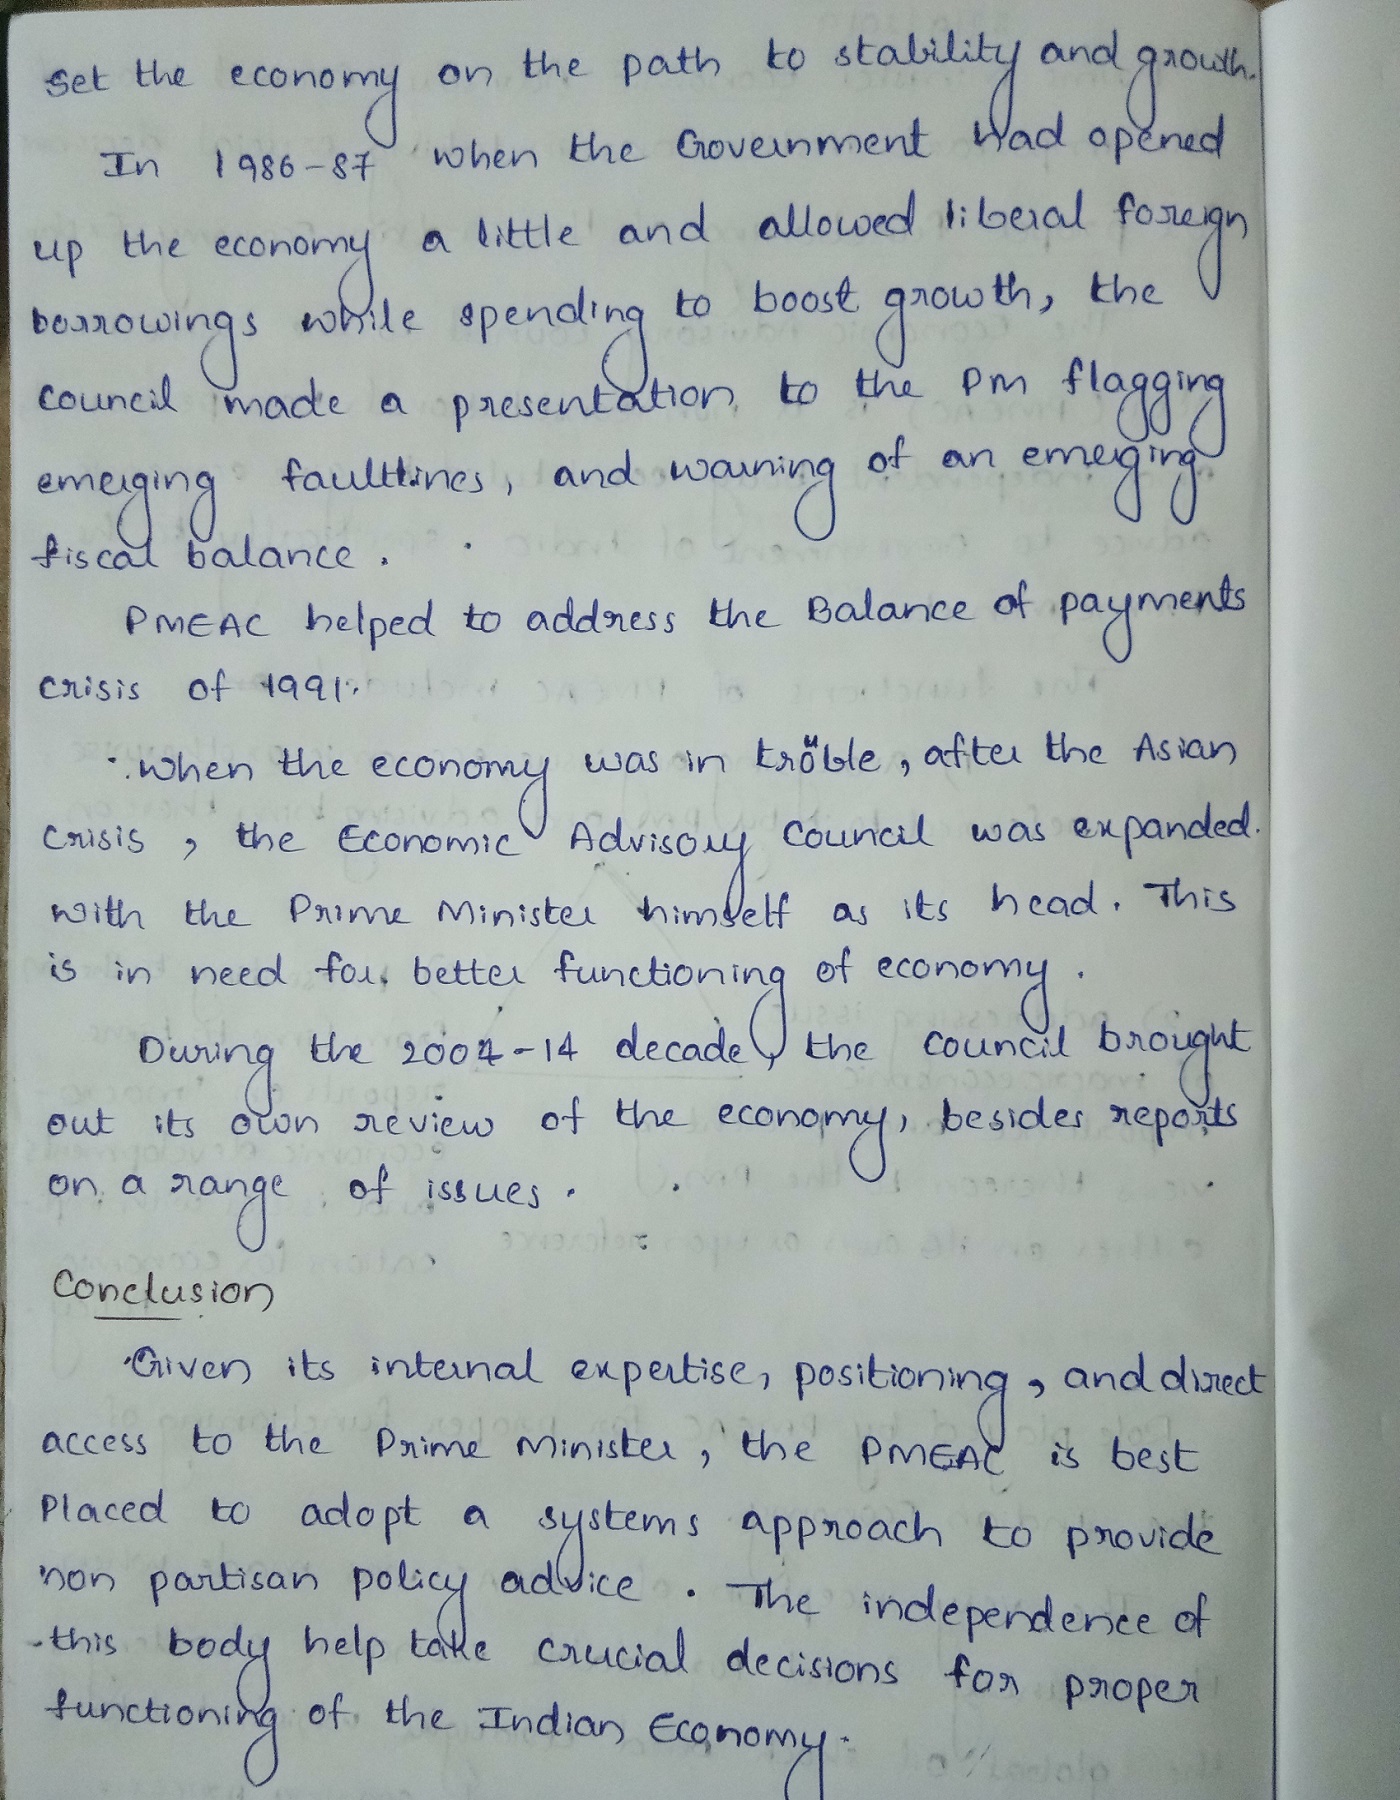 set the economy on the path to stability and growth.
In 1986-87 when the Government had opened
up the economy a little and allowed liberal foreign
borrowings while spending to boost growth, the
council made a presentation to the PM flagging
emerging faultlines, and warning of an emerging
fiscal balance.
PMEAC helped to address the Balance of payments
crisis of 1991.
When the economy was in trouble, after the Asian
crisis, the Economic Advisory Council was expanded.
with the Prime Minister himself as its head. This
is in need for better functioning of economy.
During the 2004-14 decade, the council brought
out its own review of the economy, besides reports
on a range of issues.
Conclusion
Given its internal expertise, positioning, and direct
access to the Prime Minister, the PMEAC is best
Placed to adopt a systems approach to provide
non partisan policy advice. The independence of
this body help take crucial decisions for proper
functioning of the Indian Economy.